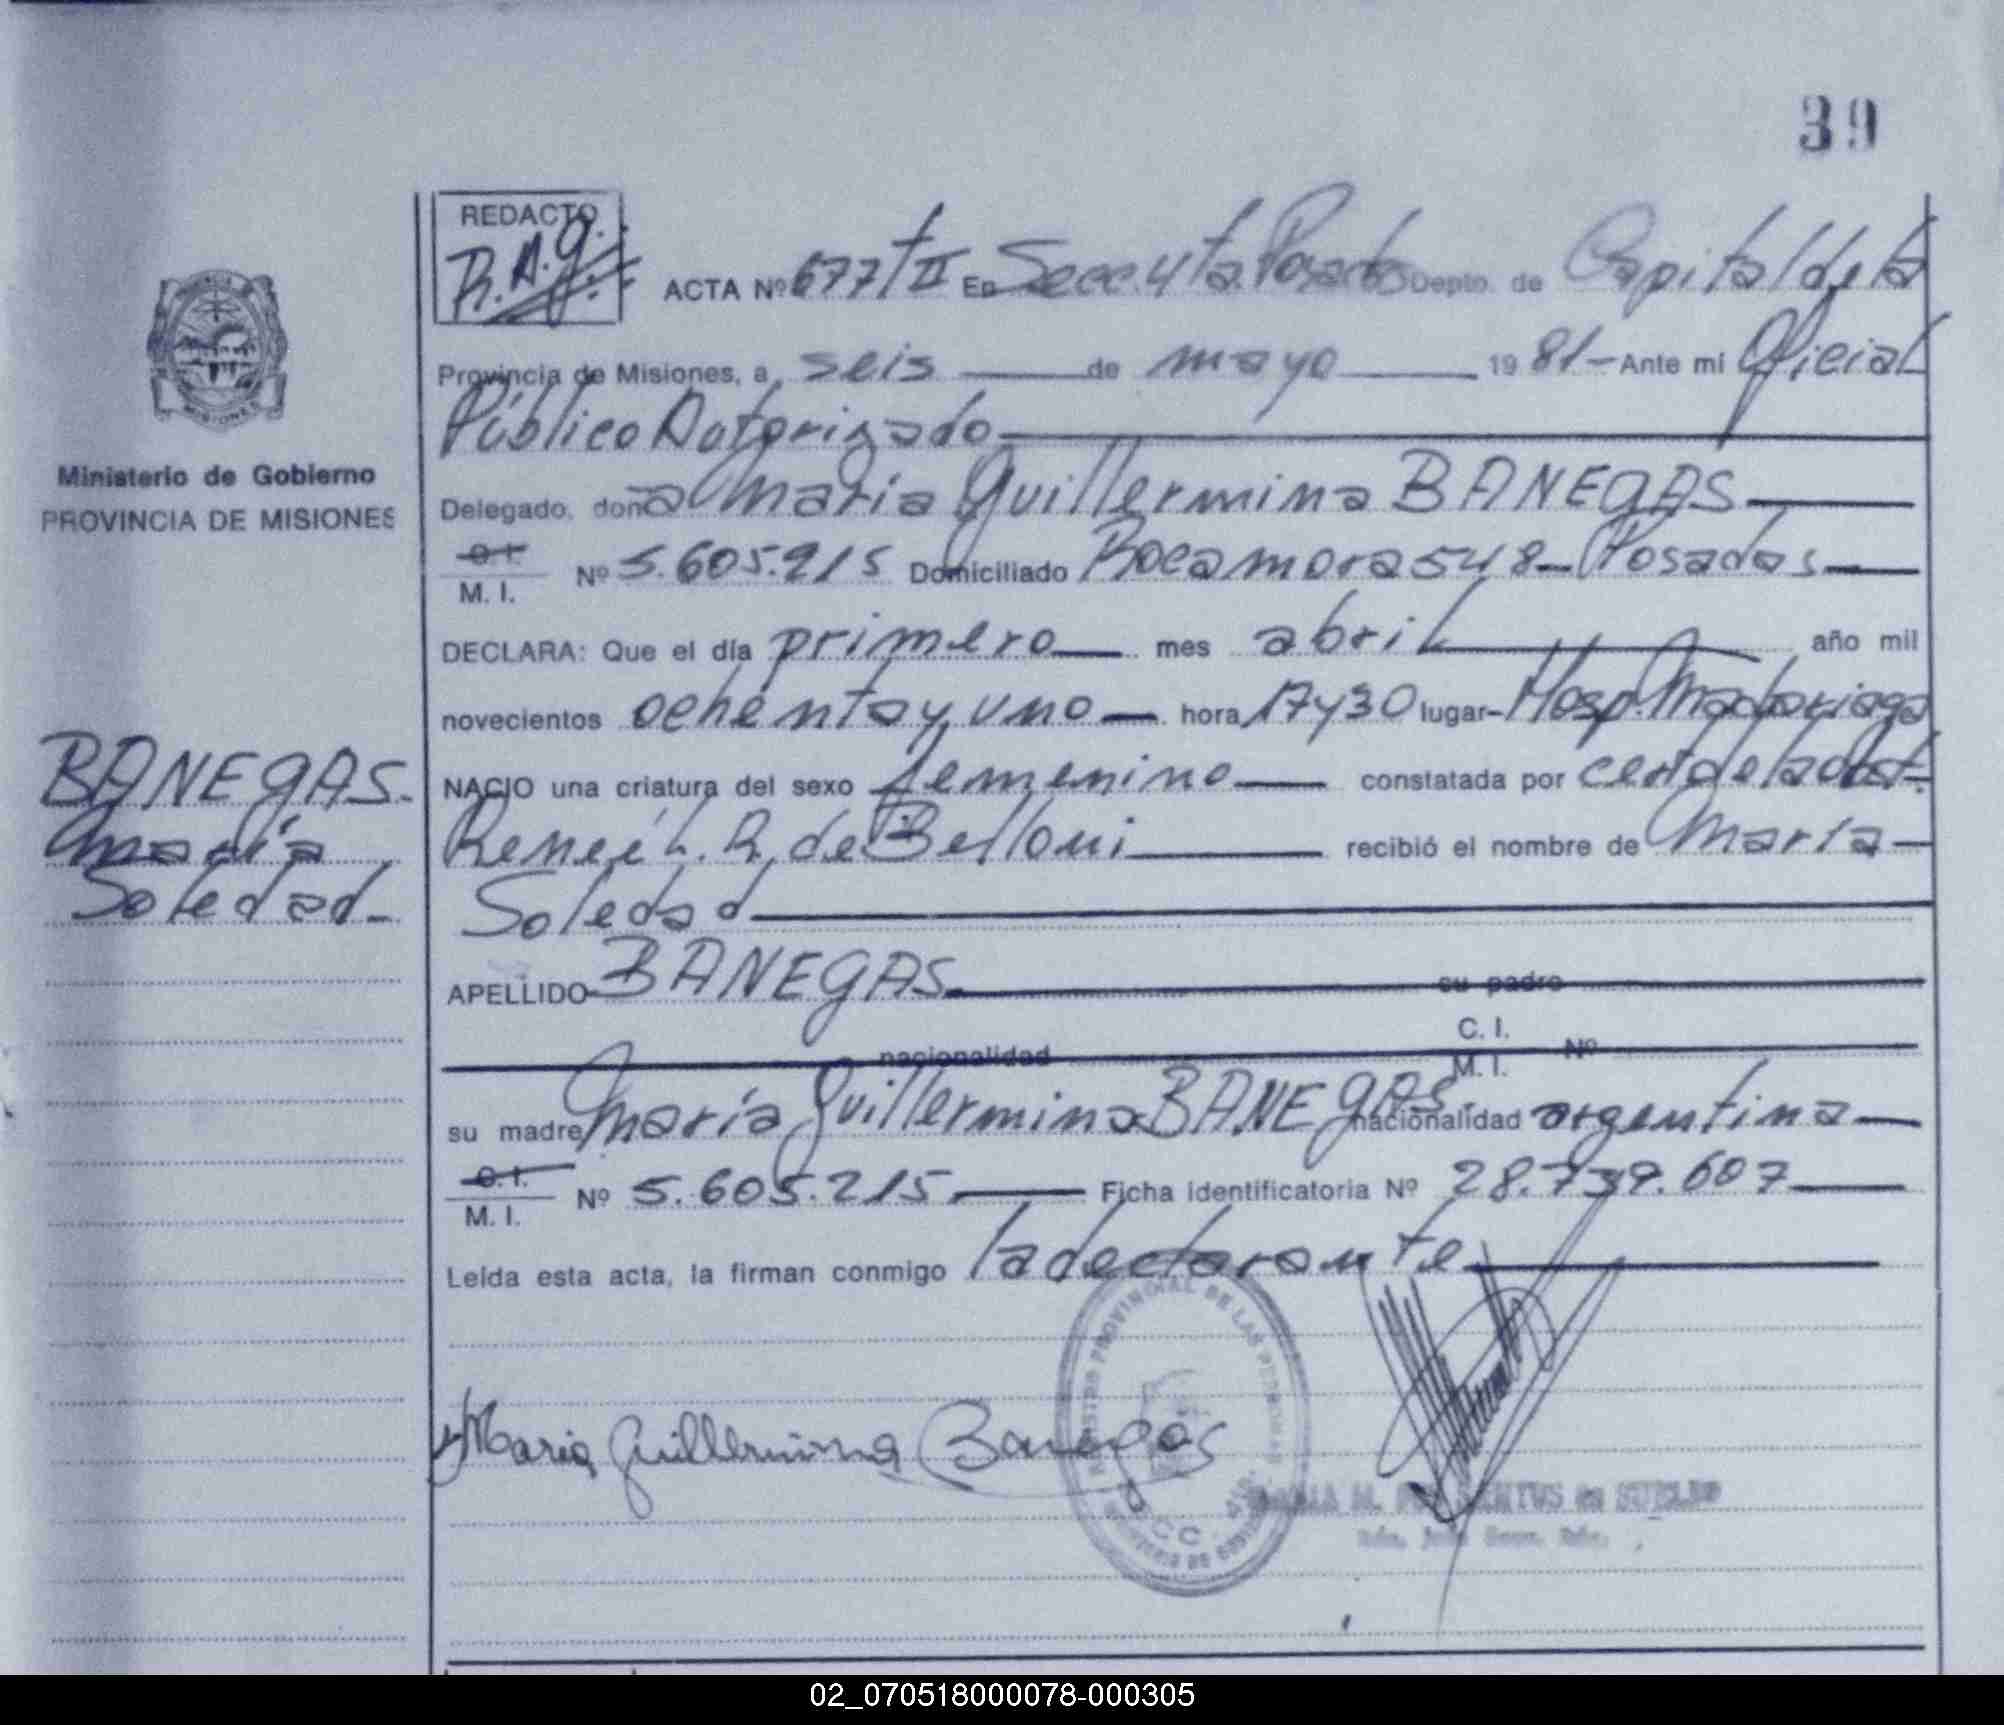 39
REDACTO
R.A.G.
ACTA Nº 677 t II En Secc. 4ta. Posadas Depto. de Capital de la
Provincia de Misiones, a seis de mayo 1981- Ante mi Oficial
Público Autorizado
Ministerio de Gobierno
PROVINCIA DE MISIONES
Delegado, doña María Guillermina BANEGAS
C. I.
M. I. Nº 5.605.215 Domiciliado Rocamora 548- Posadas
DECLARA: Que el día primero mes abril año mil
novecientos ochenta y uno hora 17 y 30 lugar- Hosp. Madariaga
NACIO una criatura del sexo femenino constatada por cert de la obst.
Reneé L. R. de Belloni recibió el nombre de María
Soledad
BANEGAS.
María
Soledad
APELLIDO BANEGAS su padre
nacionalidad C. I.
M. I. Nº
su madre María Guillermina BANEGAS- nacionalidad argentina
C. I.
M. I. Nº 5.605.215 Ficha identificatoria Nº 28.739.607
Leída esta acta, la firman conmigo la declarante
REGISTRO PROVINCIAL DE LAS PERSONAS
Maria Guillermina Banegas
MARIA M. DE SUELDO
MINISTERIO DE GOBIERNO
02_070518000078-000305